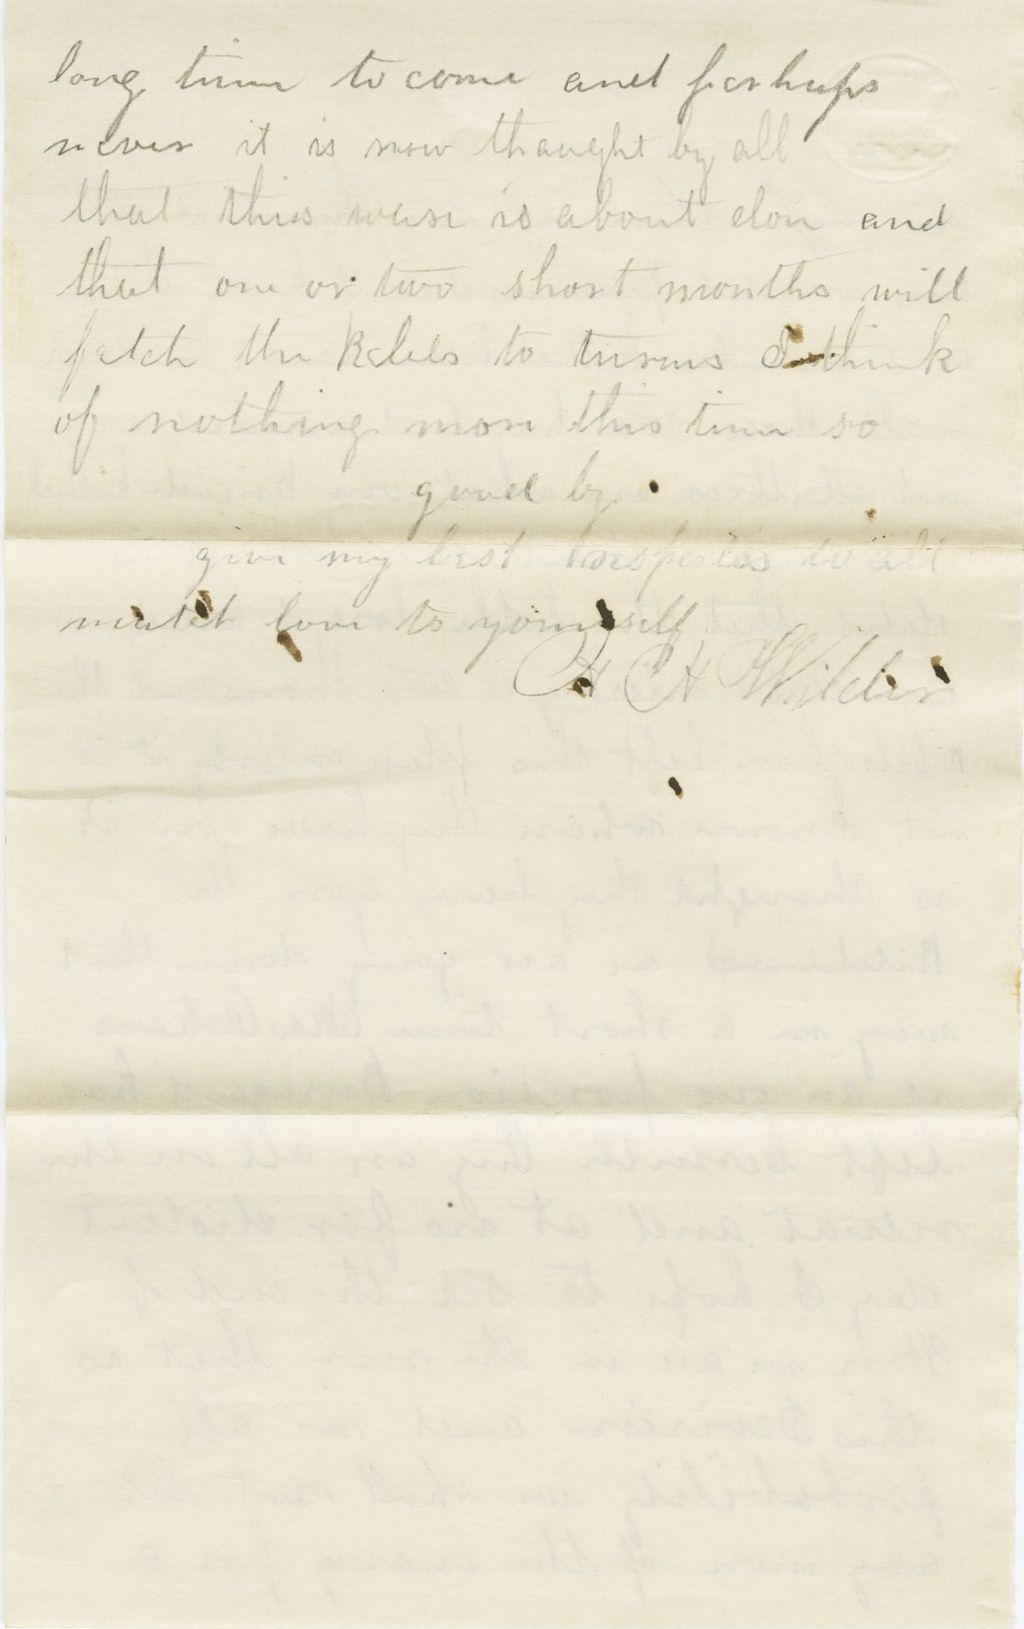 long time to come and perhaps
never it is now thought by all
that this ware is about don and
that one or two short months will
fetch the Rebles to turms I think
of nothing more this time so
good by
give my best respects to all
mutch love to yourself
H H Wilder